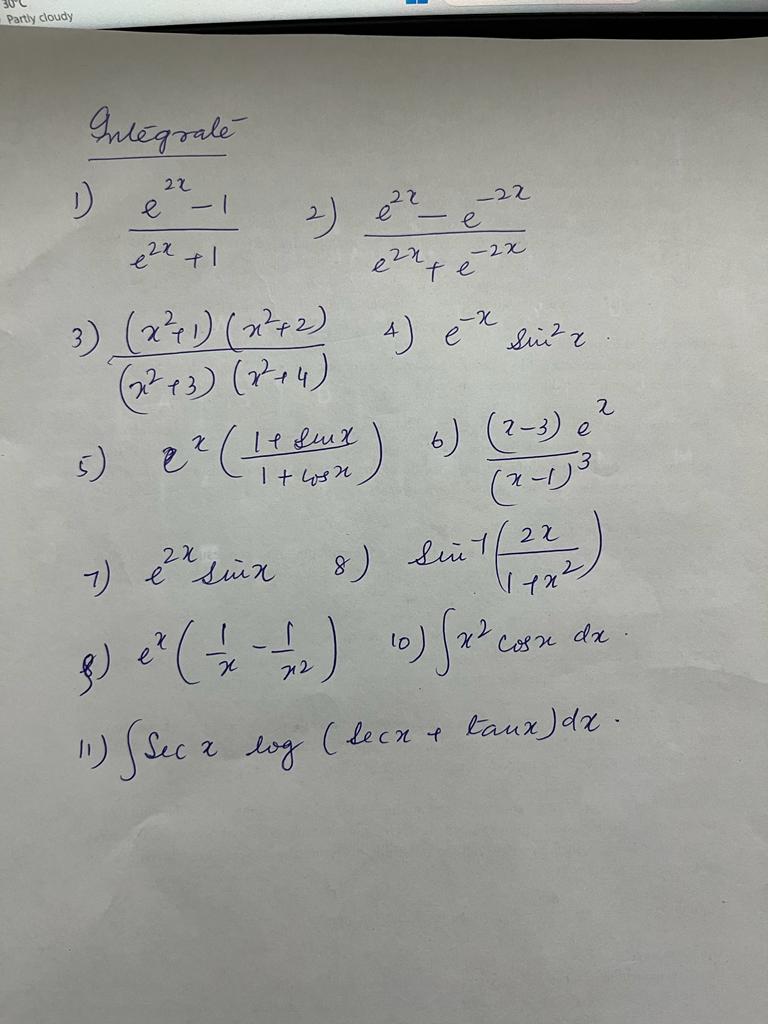 30°C
Partly cloudy
Integrate
1) (e^{2x} - 1)/(e^{2x} + 1) 2) (e^{2x} - e^{-2x})/(e^{2x} + e^{-2x})
3) (x²+1)(x²+2)/((x²+3)(x²+4)) 4) e^{-x} sin²x.
5) e^x((1+sinx)/(1+cosx)) 6) (x-3)e^x/(x-1)³
7) e^{2x} sinx 8) sin⁻¹(2x/(1+x²))
9) e^x(1/x - 1/x²) 10) ∫x² cosx dx.
11) ∫Sec x log (secx + tanx)dx.